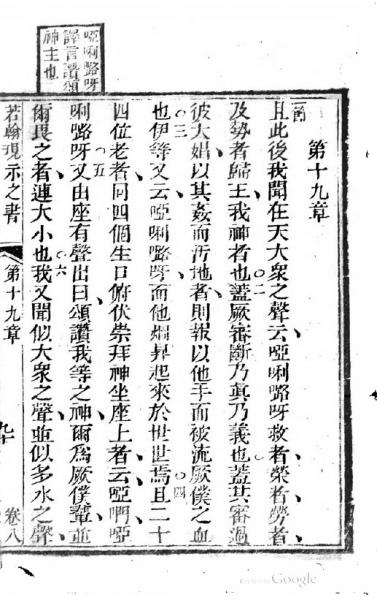 啞唎𡀔呀
譯言讚頌
神主也
第十九章
一節且此後我聞在天大衆之聲云啞唎𡀔呀救者榮者勞者
及勢者歸王我神者也○二蓋厥審斷乃眞乃義也蓋其審過
彼大娼以其姦而汚地者則報以他手而被流厥僕之血
也○三伊等又云啞唎𡀔呀而他烟昇起來於世世焉○四且二十
四位老者同四個生口俯伏崇拜神坐座上者云啞啊啞
唎𡀔呀○五又由座有聲出曰頌讚我等之神爾爲厥僕輩並
爾畏之者連大小也○六我又聞似大衆之聲並似多水之聲
若翰現示之書 第十九章 卷八
Google